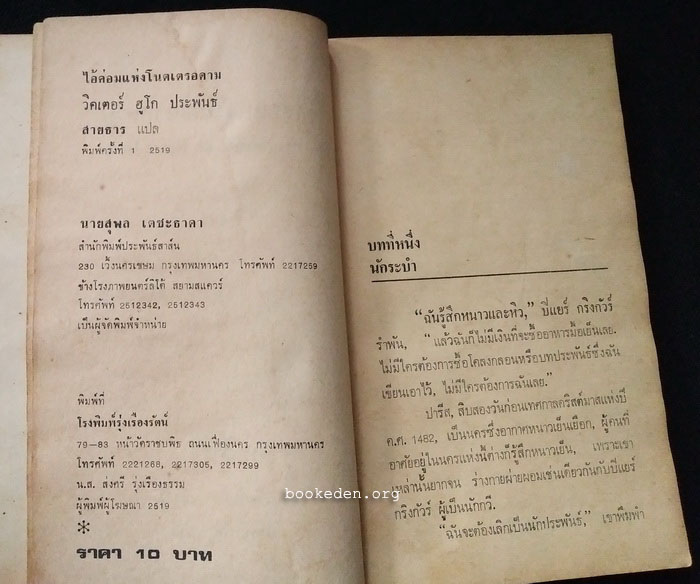 ไอ้ค่อมแห่งโนตเตรอดาม
วิคเตอร์ ฮูโก ประพันธ์
สายธาร แปล
พิมพ์ครั้งที่ 1 2519
นายสุพล เตชะธาดา
สำนักพิมพ์ประพันธ์สาส์น
230 เวิ้งนครเขษม กรุงเทพมหานคร โทรศัพท์ 2217259
ข้างโรงภาพยนตร์ลิโด้ สยามสแควร์
โทรศัพท์ 2512342, 2512343
เป็นผู้จัดพิมพ์จำหน่าย
พิมพ์ที่
โรงพิมพ์รุ่งเรืองรัตน์
79-83 หน้าวัดราชบพิธ ถนนเฟื่องนคร กรุงเทพมหานคร
โทรศัพท์ 2221268, 2217305, 2217299
น.ส. ส่งศรี รุ่งเรืองธรรม
ผู้พิมพ์ผู้โฆษณา 2519
*
ราคา 10 บาท
บทที่หนึ่ง
นักระบำ
"ฉันรู้สึกหนาวและหิว," ปีแยร์ กริงกัวร์
รำพัน, "แล้วฉันก็ไม่มีเงินที่จะซื้ออาหารมื้อเย็นเลย.
ไม่มีใครต้องการซื้อโคลงกลอนหรือบทประพันธ์ซึ่งฉัน
เขียนเอาไว้, ไม่มีใครต้องการฉันเลย."
ปารีส, สิบสองวันก่อนเทศกาลคริสต์มาสแห่งปี
ค.ศ. 1482, เป็นนครซึ่งอากาศหนาวเย็นเยือก, ผู้คนที่
อาศัยอยู่ในนครแห่งนี้ต่างก็รู้สึกหนาวเย็น, เพราะเขา
เหล่านั้นยากจน ร่างกายผ่ายผอมเช่นเดียวกันกับปีแยร์
กริงกัวร์ ผู้เป็นนักกวี.
"ฉันจะต้องเลิกเป็นนักประพันธ์," เขาพึมพำ
bookeden.org